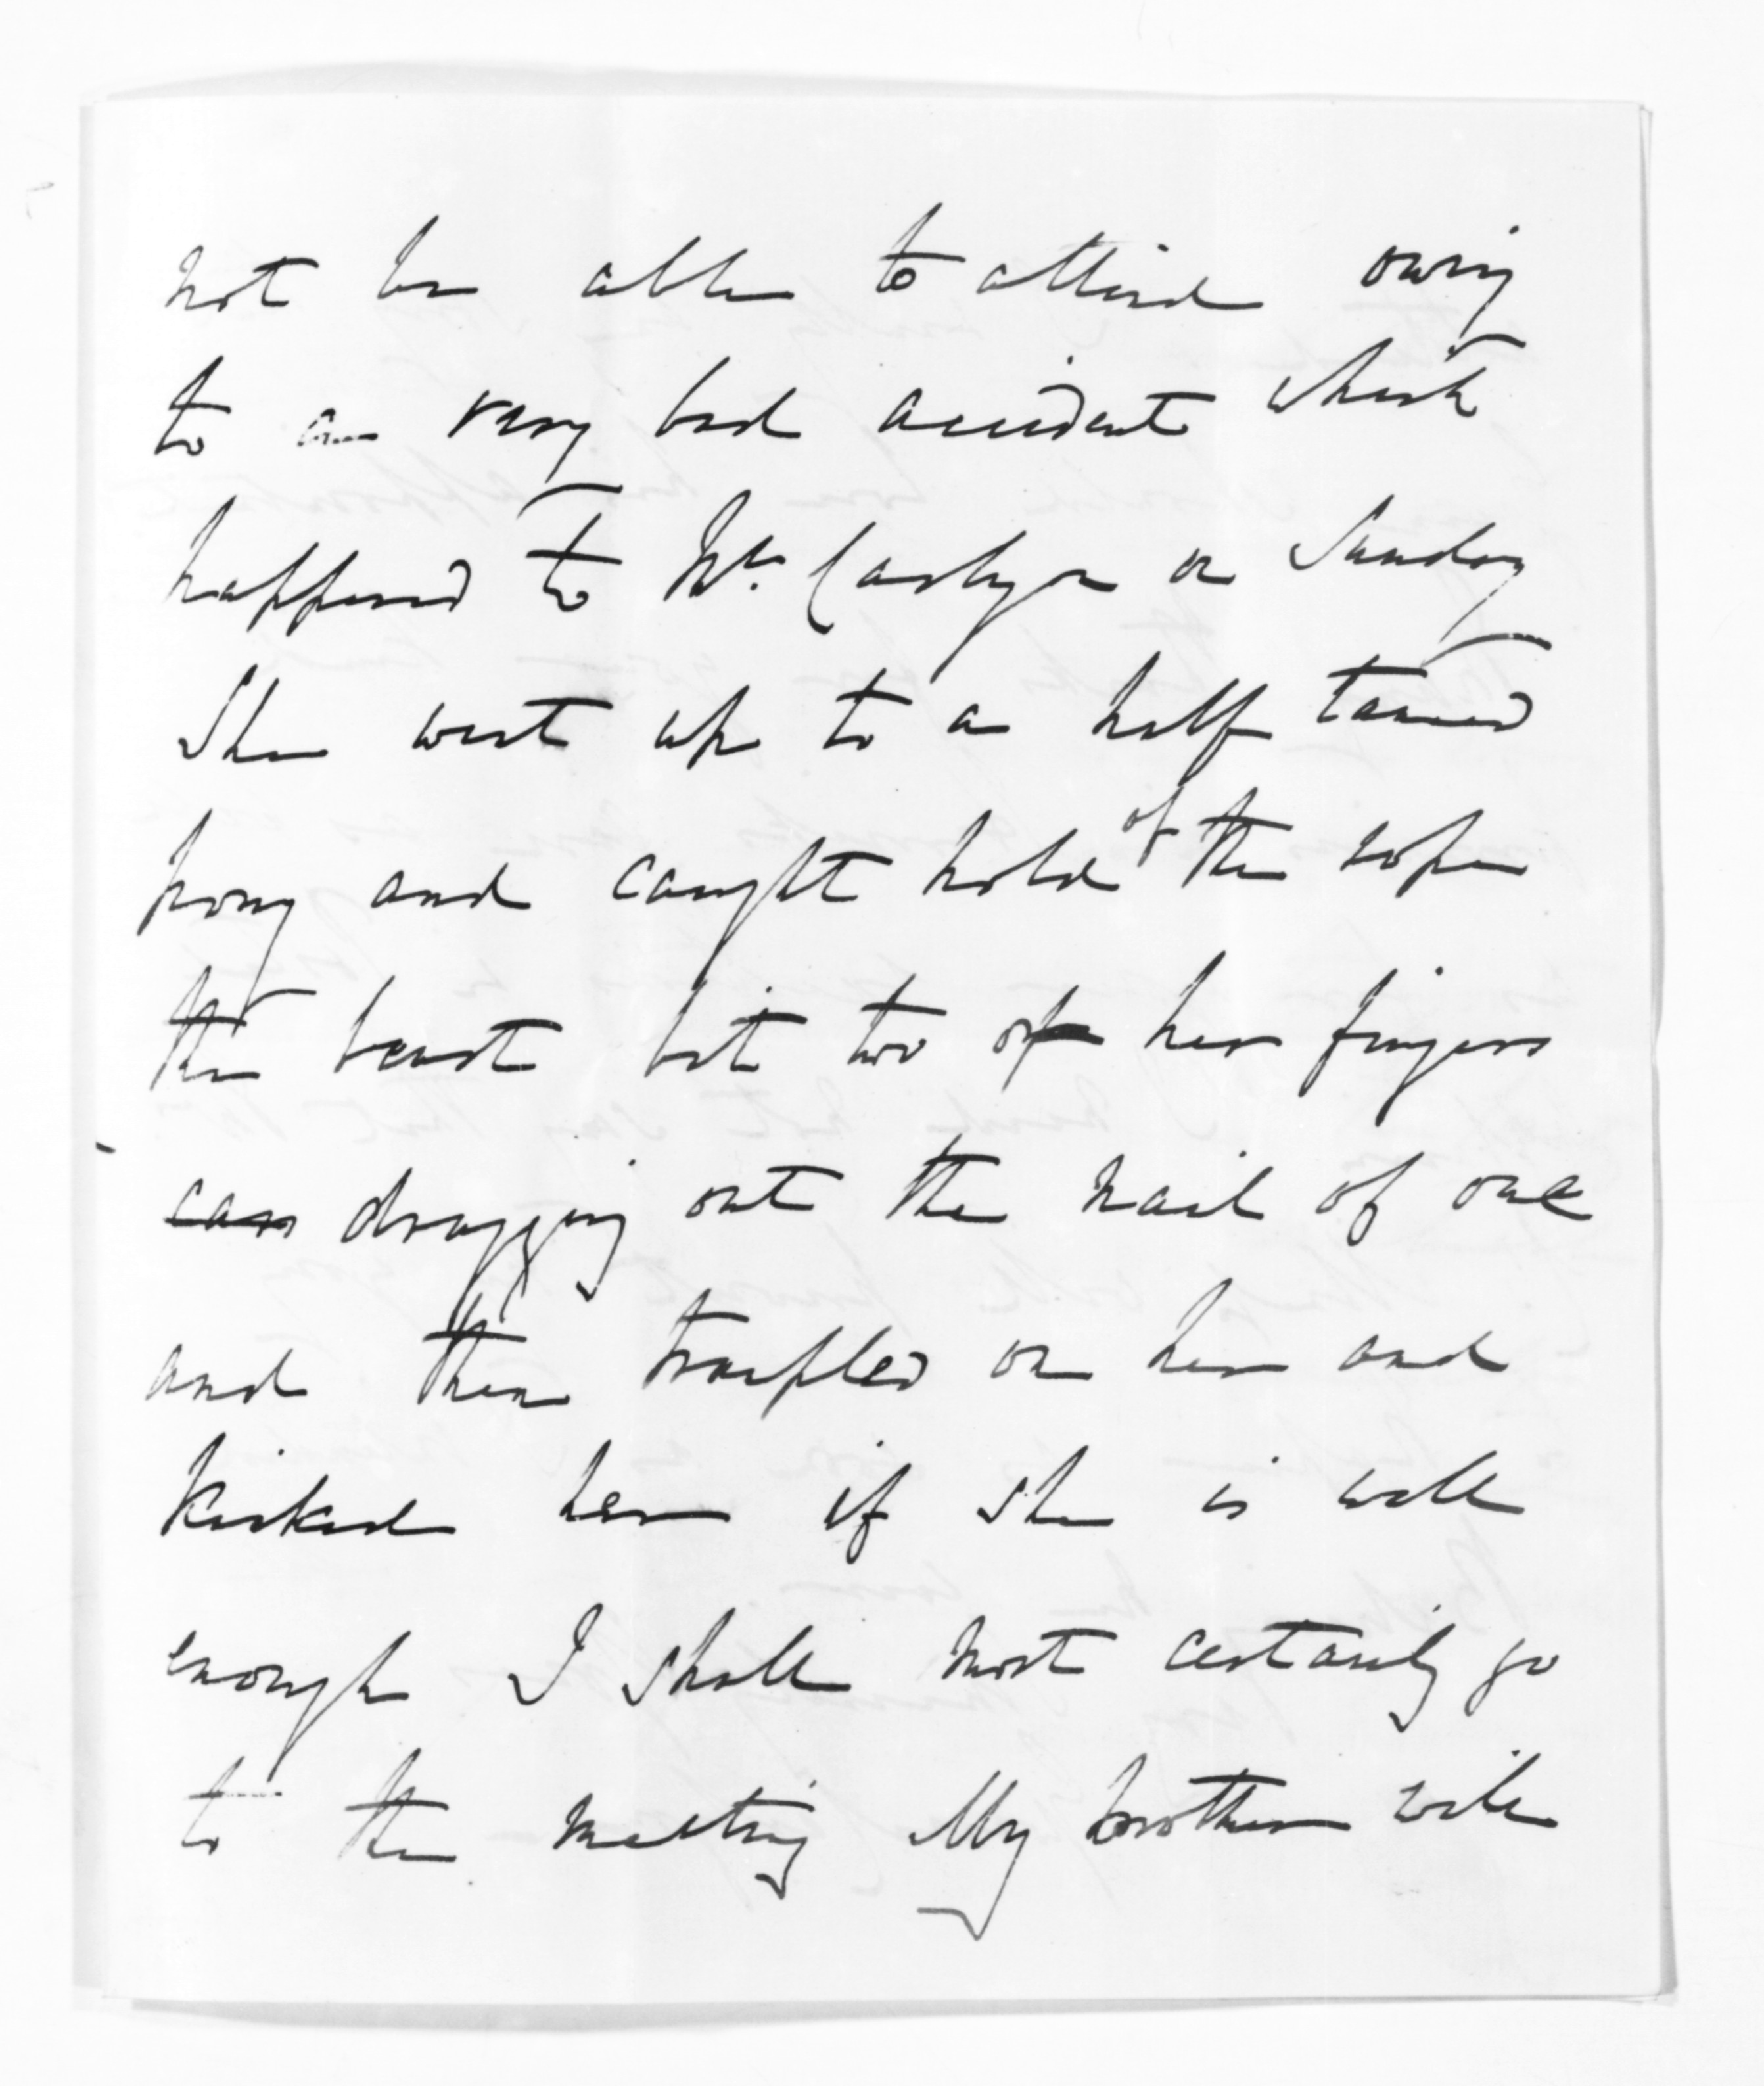 not be able to attend owing
to a very bad accident which
happened to Mrs Carlyon on Sunday
She went up to a half tamed
pony and caught hold of the rope
the beast bit two of her fingers
dragging out the nail of one
and then trampled on her and
kicked her if she is well
enough I shall most certainly go
to the meeting My brother will